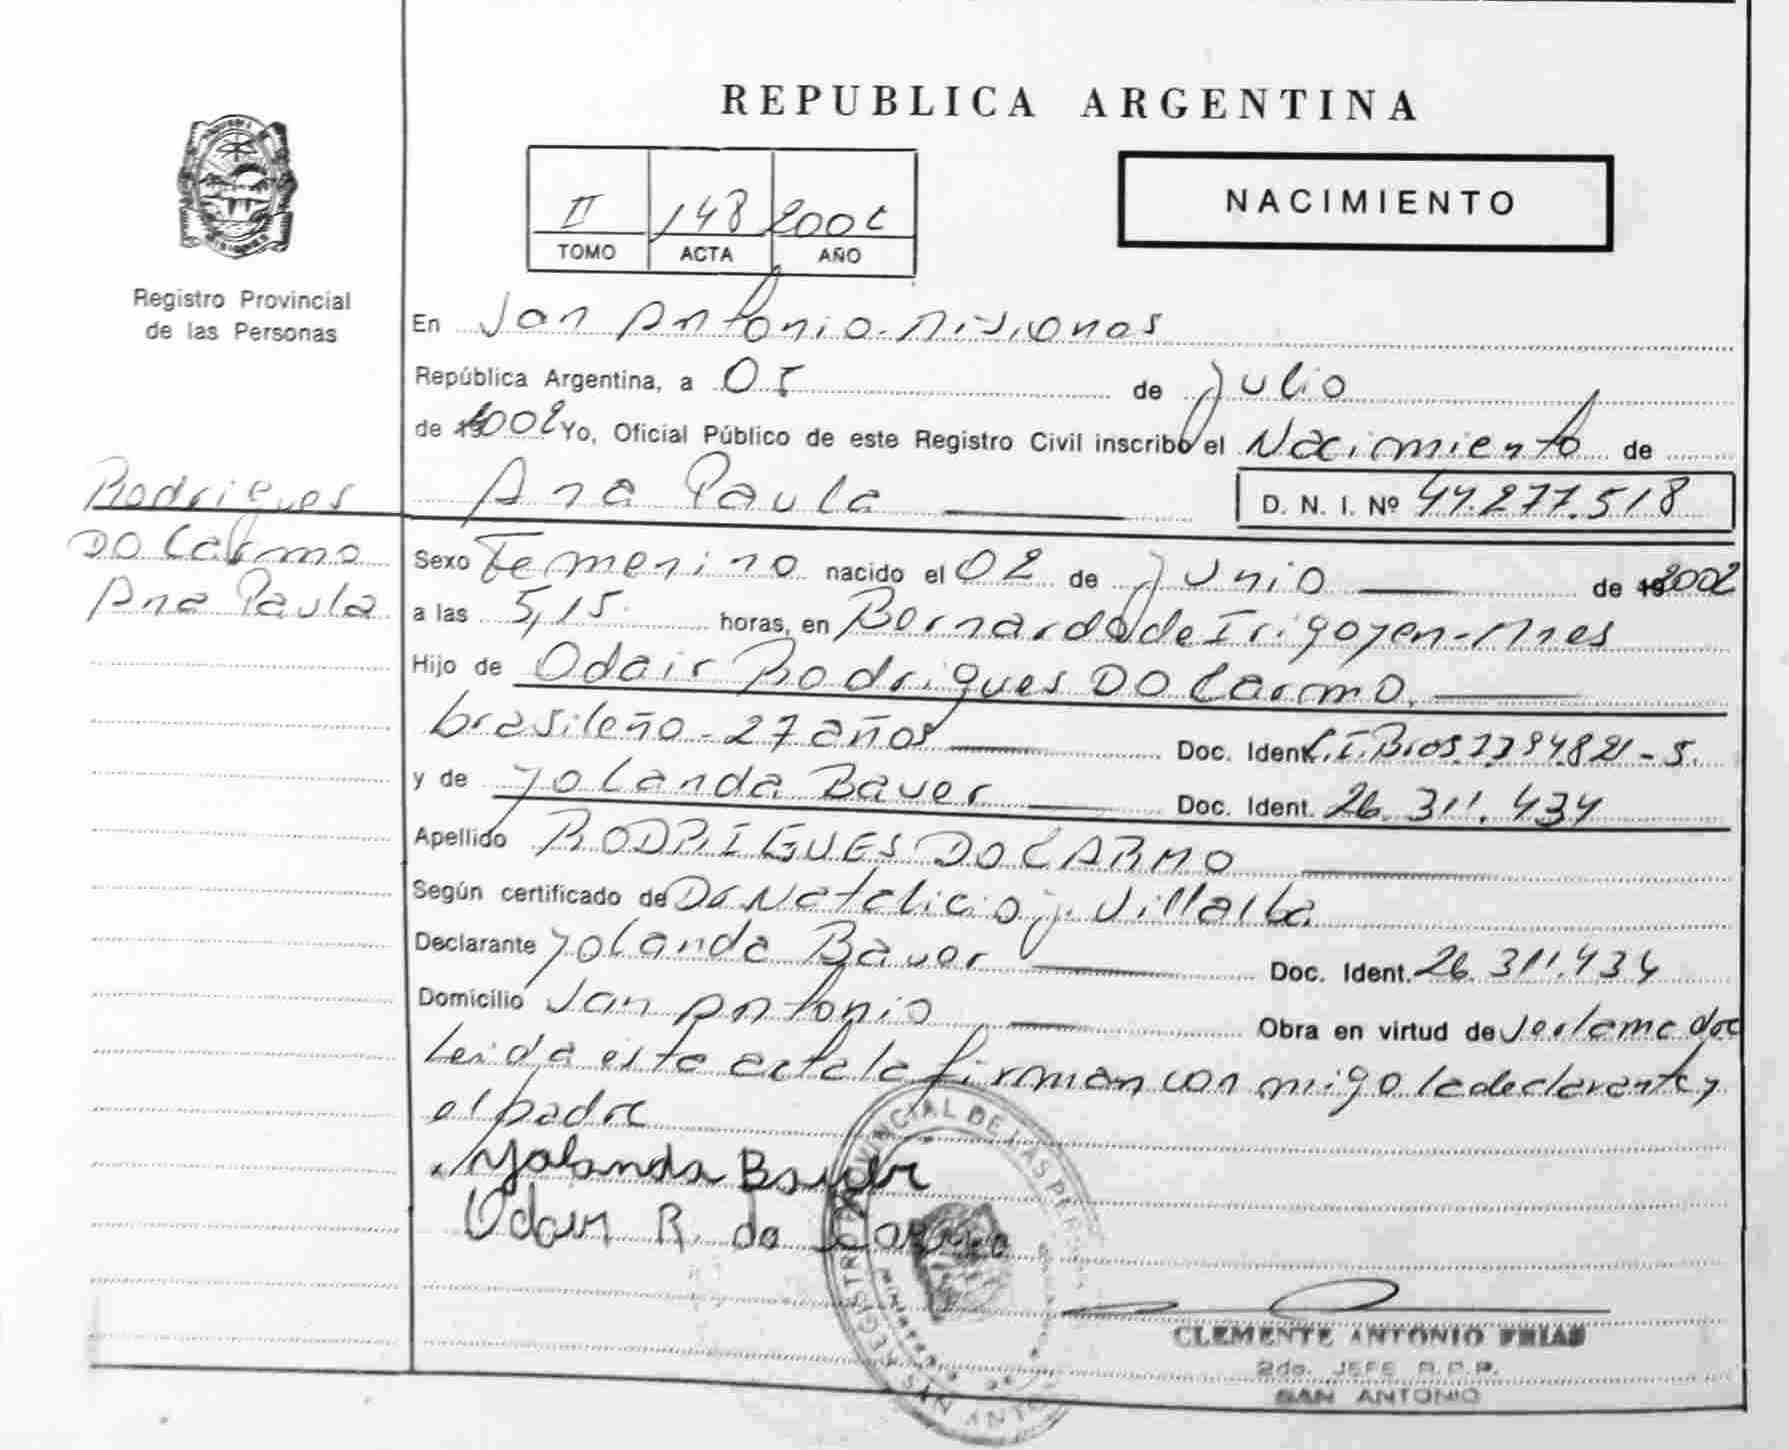 REPUBLICA ARGENTINA
NACIMIENTO
II 148 2002
TOMO ACTA AÑO
Registro Provincial
de las Personas
En San Antonio-Misiones
República Argentina, a 05 de Julio
de 2002 Yo, Oficial Público de este Registro Civil inscribo el Nacimiento de
Ana Paula D. N. I. Nº 44.277.518
Rodrigues
DO Carmo
Ana Paula
Sexo Femenino nacido el 02 de Junio de 2002
a las 5,15 horas, en Bernardo de Irigoyen-Mnes
Hijo de Odair Rodrigues DO Carmo.
brasileño-27 años Doc. Ident.
y de Yolanda Bauer Doc. Ident. 26.311.434
Apellido RODRIGUES DO CARMO
Según certificado de Dr Natalicio J. Villalba
Declarante Yolanda Bauer Doc. Ident. 26.311.434
Domicilio San Antonio Obra en virtud de
Leida esta acta la firman con migo la declarante y
el padre
Yolanda Bauer
Odair R. do Carmo
REGISTRO PROVINCIAL DE LAS PERSONAS
CLEMENTE ANTONIO FRIAS
2do. JEFE R.P.P.
SAN ANTONIO